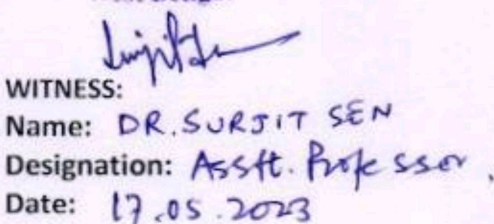 WITNESS:
Name: DR. SURJIT SEN
Designation: Asstt. Professor
Date: 17.05.2023